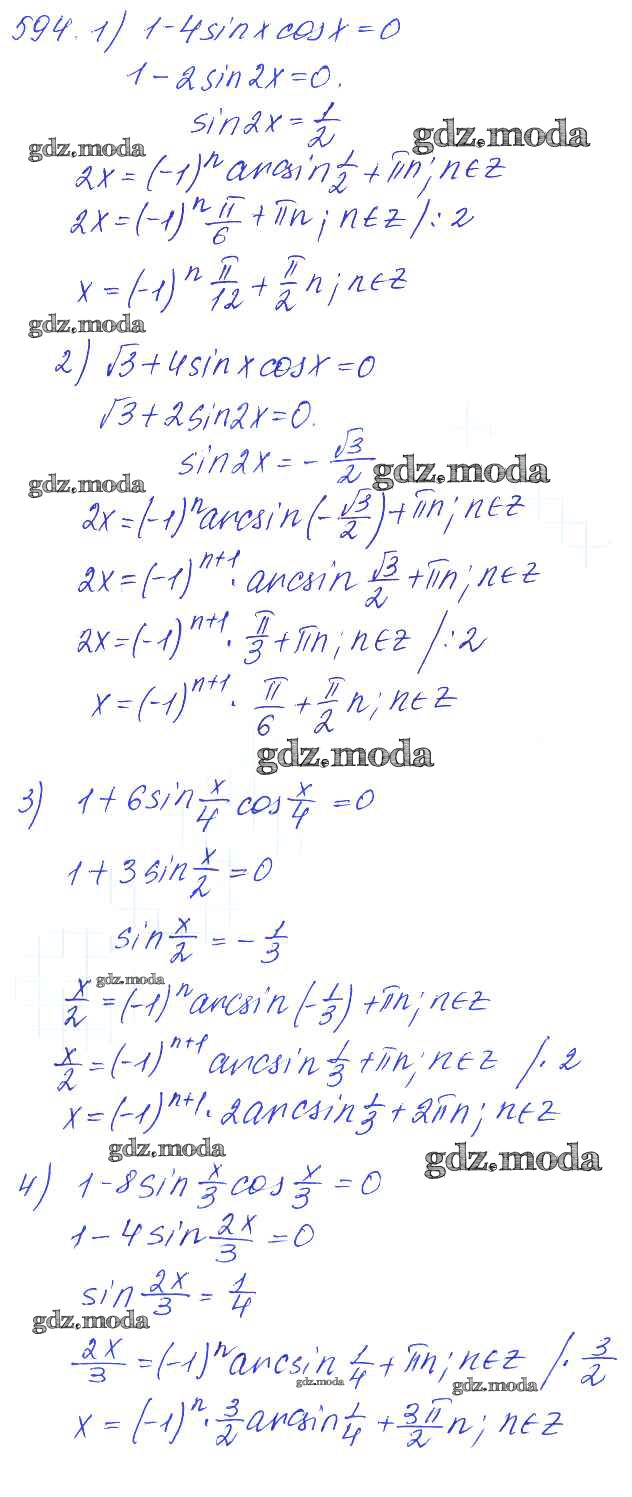 594. 1) 1-4sinxcosx=0
1-2sin2x=0.
sin2x=1/2
gdz.moda gdz.moda
2x=(-1)^n arcsin 1/2 + πn; n∈Z
2x=(-1)^n π/6 + πn; n∈Z /:2
x=(-1)^n π/12 + π/2 n; n∈Z
gdz.moda
2) √3+4sinxcosx=0
√3+2sin2x=0.
sin2x=-√3/2
gdz.moda gdz.moda
2x=(-1)^n arcsin(-√3/2)+πn; n∈Z
2x=(-1)^{n+1}·arcsin √3/2 +πn; n∈Z
2x=(-1)^{n+1}·π/3+πn; n∈Z /:2
x=(-1)^{n+1}·π/6+π/2 n; n∈Z
gdz.moda
3) 1+6sin x/4 cos x/4 =0
1+3sin x/2=0
sin x/2=-1/3
gdz.moda
x/2=(-1)^n arcsin(-1/3)+πn; n∈Z
x/2=(-1)^{n+1} arcsin 1/3+πn; n∈Z /·2
x=(-1)^{n+1}·2arcsin 1/3+2πn; n∈Z
gdz.moda gdz.moda
4) 1-8sin x/3 cos x/3=0
1-4sin 2x/3=0
sin 2x/3=1/4
gdz.moda
2x/3=(-1)^n arcsin 1/4+πn; n∈Z /·3/2
gdz.moda gdz.moda
x=(-1)^n·3/2 arcsin 1/4+3π/2 n; n∈Z